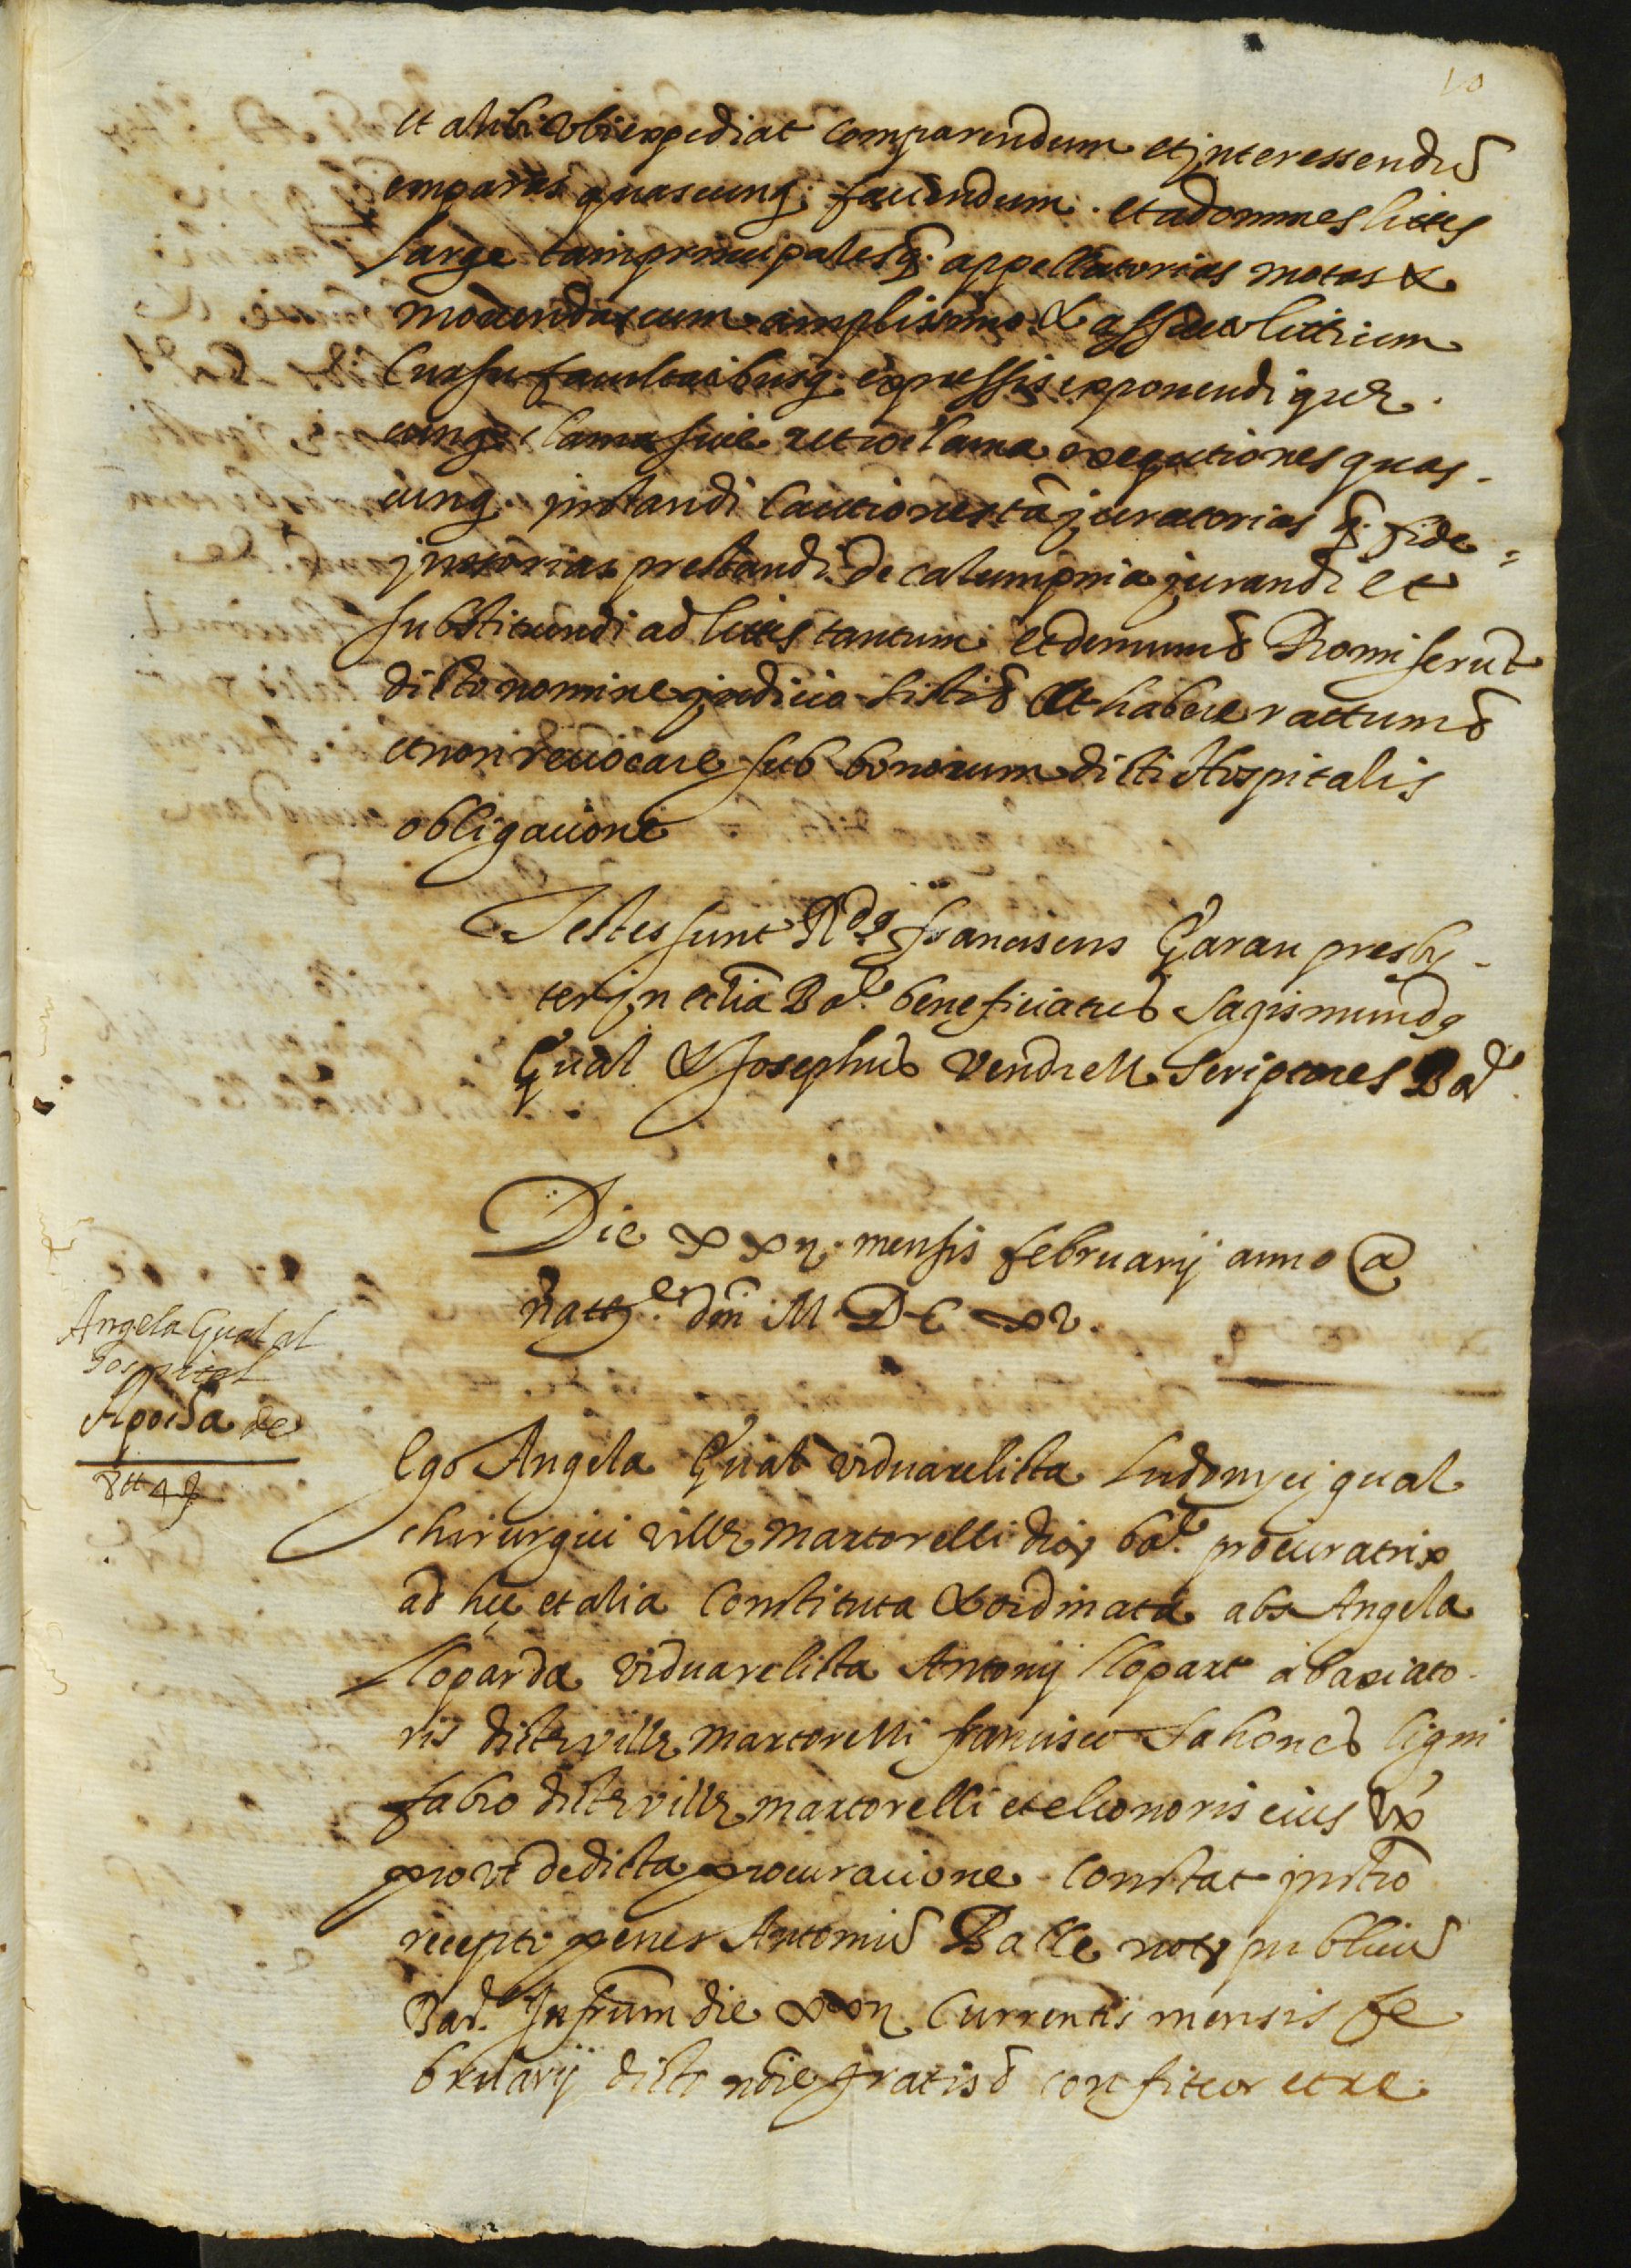 10
et alibi vbi expediat comparendum et jnteressendū
emparas quascunq; faciendum et ad omnes littes
large tam principales q̃ appellatorias motas &
mouendas cum amplissimo & assueto littium
cursu facultatibusq; expressis exponendi que
cunq; clama siue retroclama exequtiones quas
cunq; jnstandi cautiones tā juratorias q̃ fide
jussorias prestandi de calumpnia jurandi et
substituendi ad littes tantum et demum & Promiserūt
dicto nomine judicio sisti & Et habere rattum &
et non reuocare sub bonorum dicti Hospitalis
obligacione
Testes sunt Rdus franciscus Garau presby
ter jn ecclia Bar. beneficiatus Sagismundus
Gual & Josephus Vendrell scriptores Bar.
Die xxij mensis februarij anno a
natte. dni M DC xv.
Angela Gual al
hospital
Apocha de
8 tt 4 s
Ego Angela Gual vidua relicta Ludouici gual
chirurgici ville Martorelli dioc. bar. procuratrix
ad hec et alia constituta & ordinata abs Angela
lloparda vidua relicta Antonij llopart abaxiato
ris dicte ville Martorelli francisco Sahones ligni
fabro dicte ville martorelli et elionoris eius vx̃
prout de dicta procuracione constat jnstro
recepto penes Antoniū Batlle not. publicū
Bar. jnfrūm die xxij currentis mensis fe
bruarij dicto nõie gratis & confiteor et re